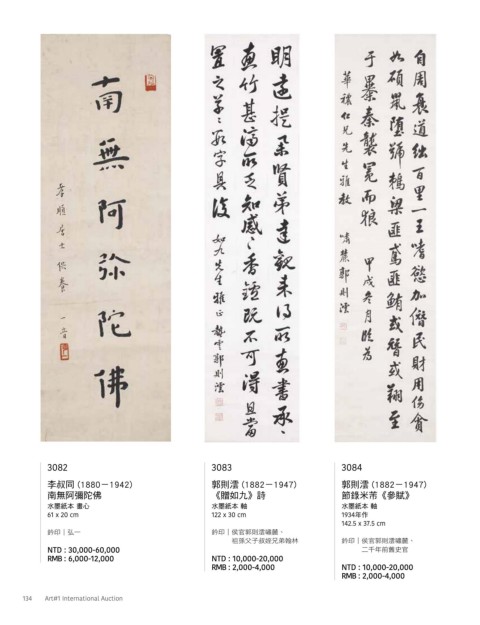 南無阿弥陀佛
孝順居士供養
一音
明遠提舉賢弟達觀來得所惠書承、
惠竹甚濟所乏知感、香鑪既不可得且當
置之草、奴字具後
如九先生雅正 蟄雲郭則澐
自周衰道絀百里一王嗜慾加僭民財用傷貪
如碩鼠墮號鵜梁匪鳶匪鮪或簪或翔至
于暴秦襲冕而狼 甲戌冬月臨為
華穠仁兄先生雅教 嘯麓郭則澐
3082
李叔同 (1880－1942)
南無阿彌陀佛
水墨紙本 畫心
61 x 20 cm
鈐印｜弘一
NTD : 30,000-60,000
RMB : 6,000-12,000
3083
郭則澐 (1882－1947)
《贈如九》詩
水墨紙本 軸
122 x 30 cm
鈐印｜侯官郭則澐嘯麓、
祖孫父子叔姪兄弟翰林
NTD : 10,000-20,000
RMB : 2,000-4,000
3084
郭則澐 (1882－1947)
節錄米芾《參賦》
水墨紙本 軸
1934年作
142.5 x 37.5 cm
鈐印｜侯官郭則澐嘯麓、
二千年前舊史官
NTD : 10,000-20,000
RMB : 2,000-4,000
134 Art#1 International Auction